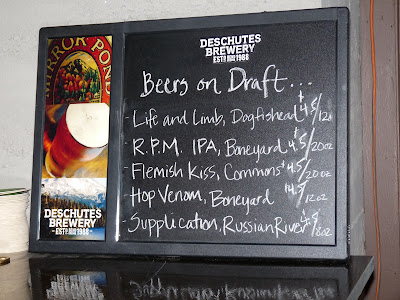 MIRROR POND
DESCHUTES
BREWERY
ESTD 1988
DESCHUTES
BREWERY
ESTD 1988
Beers on Draft...
- Life and Limb, Dogfishead $4.5/12oz
- R.P.M. IPA, Boneyard $4.5/20oz
- Flemish Kiss, Commons $4.5/20oz
- Hop Venom, Boneyard $4.5/12oz
- Supplication, Russian River $4.5/8oz